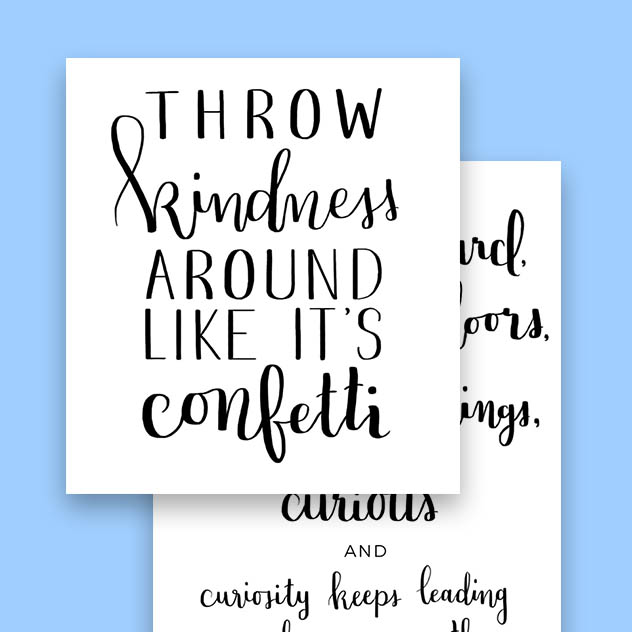 THROW
kindness
AROUND
LIKE IT'S
confetti
curious
AND
curiosity keeps leading